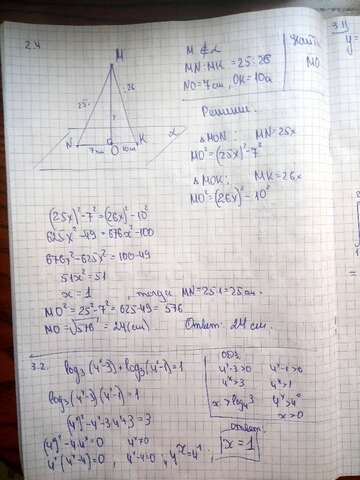 2.4
M ∉ α
MN:MK = 25:26
NO = 7см, OK = 10см
Найти
MO
3.11
y=
M
25
26
N
7см
O
10см
K
α
Решение.
△MON: MN = 25x
MO² = (25x)² - 7²
△MOK: MK = 26x
MO² = (26x)² - 10²
(25x)² - 7² = (26x)² - 10²
625x² - 49 = 676x² - 100
676x² - 625x² = 100 - 49
51x² = 51
x = 1, тогда MN = 25·1 = 25см.
MO² = 25² - 7² = 625 - 49 = 576
MO = √576 = 24(см) Ответ: 24 см.
3.2. log₃(4ˣ-3) + log₃(4ˣ-1) = 1
log₃(4ˣ-3)(4ˣ-1) = 1
(4ˣ)² - 4ˣ - 3·4ˣ + 3 = 3
(4ˣ)² - 4·4ˣ = 0 4ˣ ≠ 0
4ˣ(4ˣ-4) = 0, 4ˣ-4 = 0, 4ˣ = 4¹
ОДЗ:
4ˣ-3 > 0 4ˣ-1 > 0
4ˣ > 3 4ˣ > 1
x > log₄3 4ˣ > 4⁰
x > 0
Ответ:
x = 1